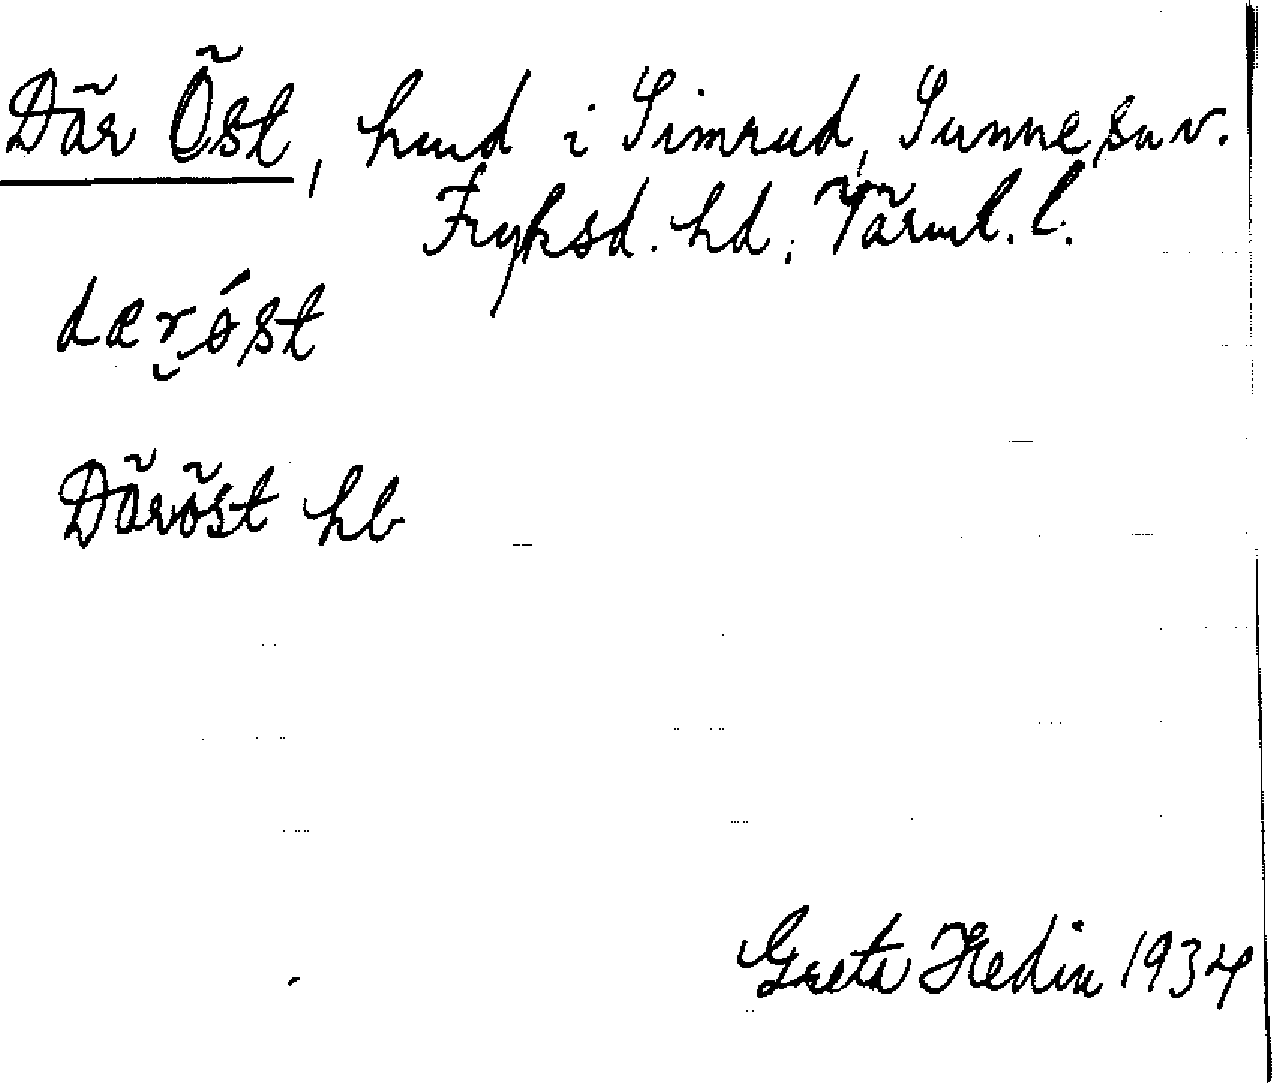 Där Öst, hmd i Simrud, Sunne sn v.
Fryksd. hd. Värml. l.
dærǿst
Däröst hb
Greta Hedin 1934